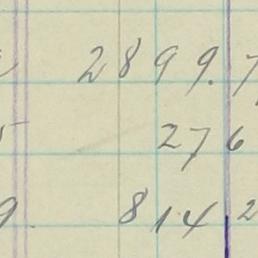 2899.7
5 276
9 814 2